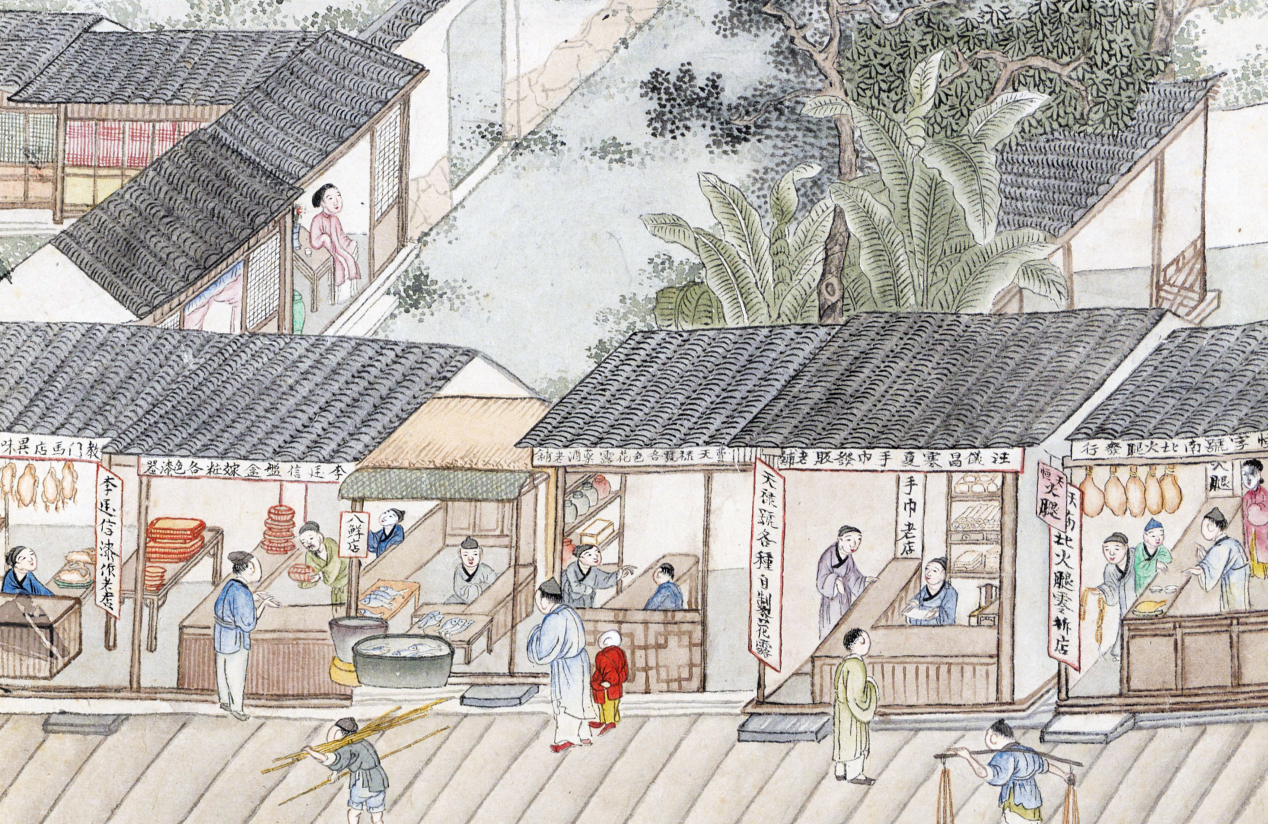 教门馬店異味
李廷信漆作老店
李廷信盤金嫁粧各色漆器
八鮮店
天祿號各色花露酒老鋪
天祿號各種自製花露
汪儀昌寒夏手巾發販老鋪
手巾老店
火腿
南北火腿店
字號南北火腿發行
腿